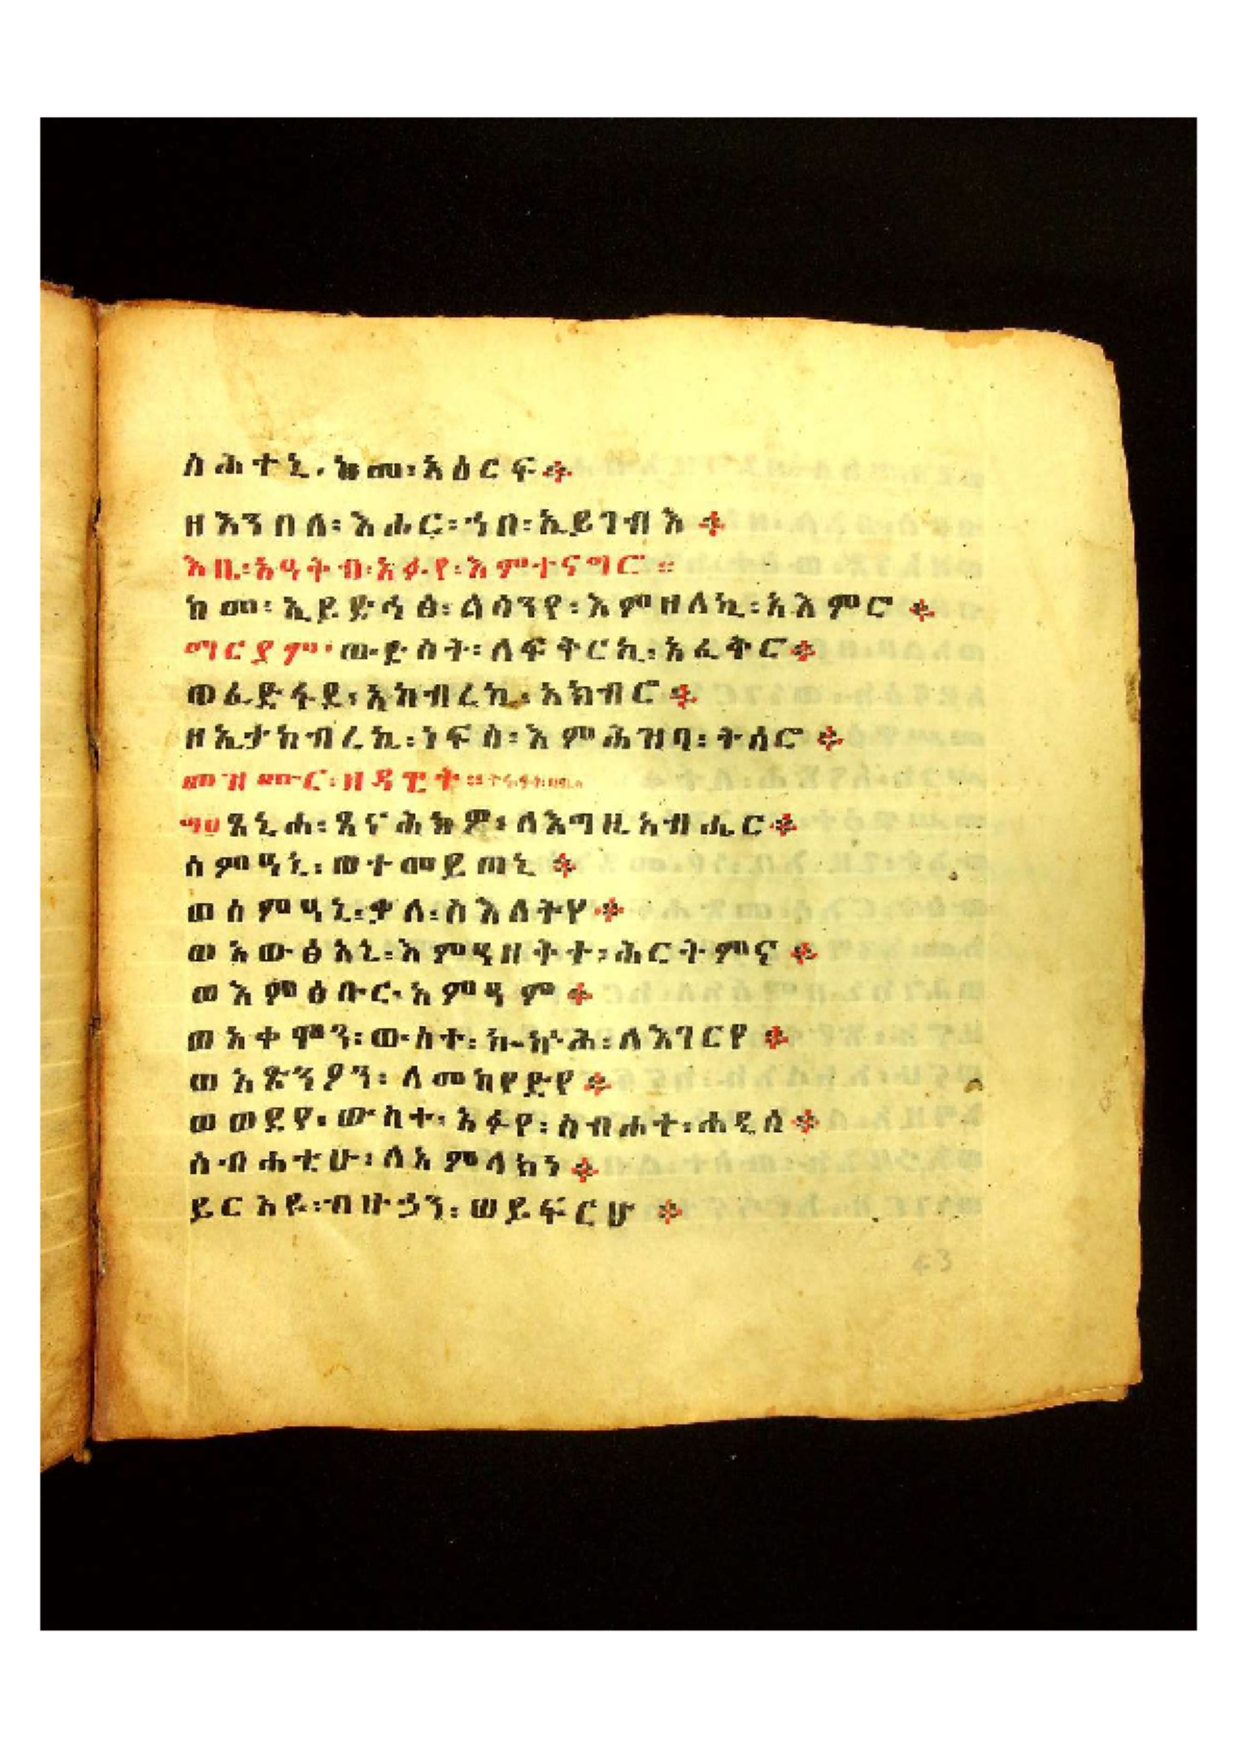 ስሕተኒ፡ ከመ፡ አዕርፍ፨
ዘእንበለ፡ እሑር፡ ኀበ፡ ኢይገብእ፨
እቢ፡ አዓትብ፡ አፉየ፡ እምተናግሮ።
ከመ፡ ኢይድኅፅ፡ ልሳንየ፡ እምዘለኪ፡ አእምሮ፨
ማርያም፡ ጡድስት፡ ለፍቅርኪ፡ አፈቅሮ፨
ወፈድፋደ፡ አክብረኪ፡ አክብሮ፨
ዘኢታከብረኪ፡ ነፍስ፡ እምሕዝባ፡ ትሰሮ፨
መዝሙር፡ ዘዳዊት።
፴፱ ጸኒሐ፡ ጸናሕክዎ፡ ለእግዚአብሔር፨
ሰምዓኒ፡ ወተመይጠኒ፨
ወሰምዓኒ፡ ቃለ፡ ስእለትየ፨
ወአውፅአኒ፡ እምዓዘቅተ፡ ሕርትምና፨
ወእምፅቡር፡ አምዓም፨
ወአቀሞን፡ ውስተ፡ ኰኵሕ፡ ለእገርየ፨
ወአጽንዖን፡ ለመከየድየ፨
ወወደየ፡ ውስተ፡ አፉየ፡ ስብሐተ፡ ሐዲሰ፨
ስብሐቲሁ፡ ለአምላክነ፨
ይርአዩ፡ ብዙኃን፡ ወይፍርሁ፨
43